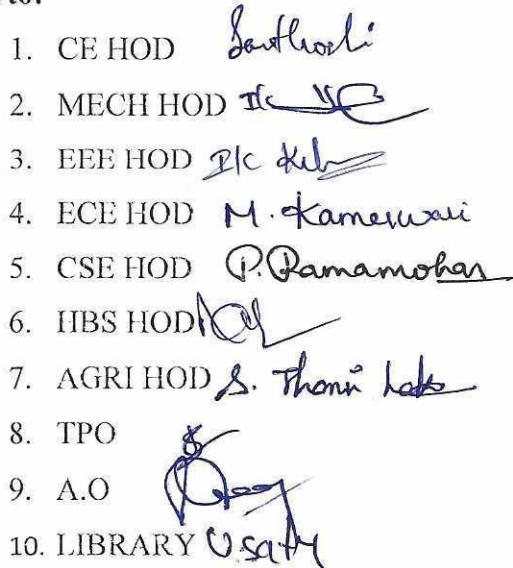 1. CE HOD Santhoshi
2. MECH HOD I/c
3. EEE HOD I/c
4. ECE HOD M. Kameswari
5. CSE HOD P. Ramamohan
6. HBS HOD
7. AGRI HOD S.
8. TPO
9. A.O
10. LIBRARY